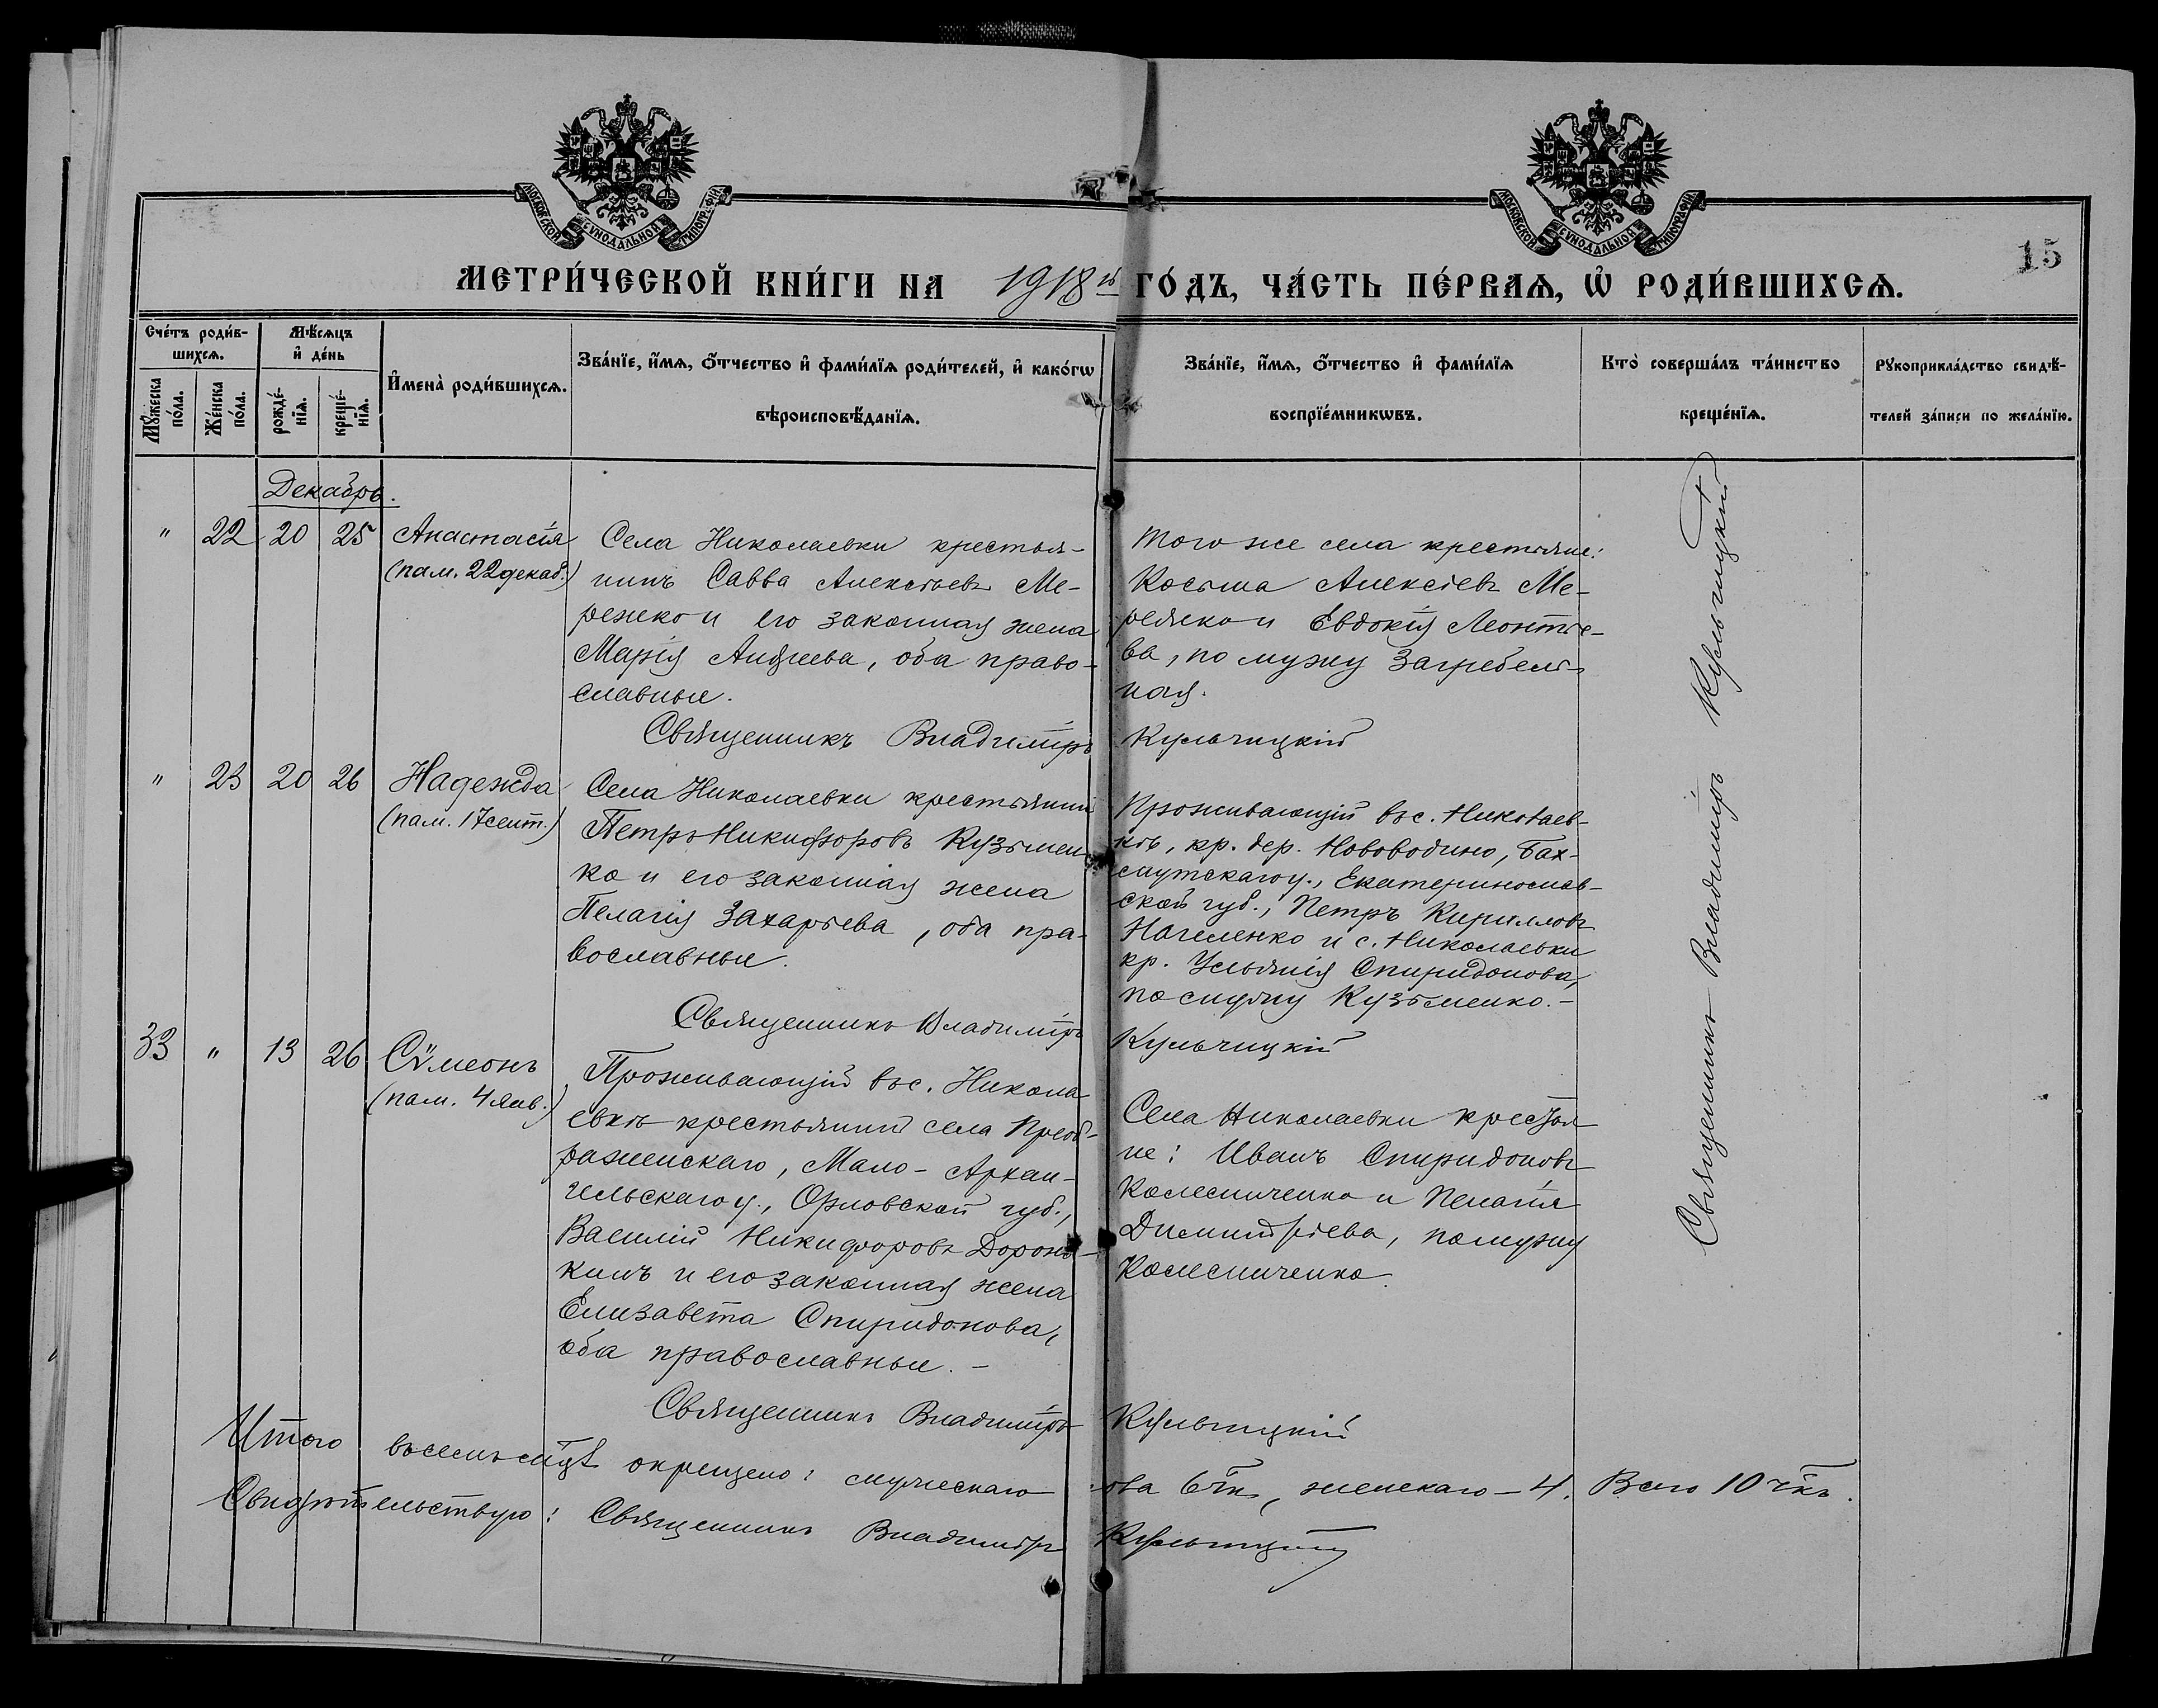 МОСКОВСКОЙ СѴНОДАЛЬНОЙ ТИПОГРАФІИ
МОСКОВСКОЙ СѴНОДАЛЬНОЙ ТИПОГРАФІИ
15
МЕТРИ́ЧЕСКОЙ КНИ́ГИ НА 1918 й ГО́ДЪ, ЧА́СТЬ ПЕ́РВАѦ, Ѡ҆ РОДИ́ВШИХСѦ.
Сче́тъ роди́в-
шихсѧ.
Мꙋ́жеска по́ла.
Же́нска по́ла.
Мѣ́сѧцъ
и҆ де́нь
рожде́-
нїѧ.
креще́-
нїѧ.
И҆мена̀ роди́вшихсѧ.
Зва́нїе, и҆́мѧ, ѻ҆́тчество и҆ фами́лїѧ роди́телей, и҆ како́гѡ
вѣроисповѣ́данїѧ.
Зва́нїе, и҆́мѧ, ѻ҆́тчество и҆ фами́лїѧ
воспрїе́мникѡвъ.
Кто̀ соверша́лъ та́инство
креще́нїѧ.
Рꙋкоприкла́дство свидѣ́-
телей за́писи по жела́нїю.
Декабрь.
" 22 20 25 Анастасія
(пам. 22 декаб.)
Села Николаевки крестья-
нинъ Савва Алексѣевъ Ме-
режко и его законная жена
Марія Андреева, оба право-
славные.
Того же села крестьяне:
Косьма Алексіевъ Ме-
режко и Евдокія Леонтье-
ва, по мужу Загребель-
ная.
Священникъ Владиміръ Кульчицкій
" 23 20 26 Надежда
(пам. 17 сент.)
Села Николаевки крестьянинъ
Петръ Никифоровъ Кузьмен-
ко и его законная жена
Пелагія Захарьева, оба пра-
вославные.
Проживающій въ с. Николаев-
кѣ, кр. дер. Нововодино, Бах-
мутскаго у., Екатеринослав-
ской губ., Петръ Кирилловъ
и с. Николаевки
кр. Ульянія Спиридонова,
по мужу Кузьменко.-
Священникъ Владиміръ Кульчицкій
33 " 13 26 Сѷмеонъ
(пам. 4 янв.)
Проживающій въ с. Никола-
евкѣ крестьянинъ села Преоб-
раженскаго, Мало-Архан-
гельскаго у., Орловской губ.,
Василій Никифоровъ Дорон-
кинъ и его законная жена
Елизавета Спиридонова,
оба православные.-
Села Николаевки крестья-
не: Иванъ Спиридоновъ
Колесниченко и Пелагія
Димитріева, по мужу
Колесниченко.
Священникъ Владиміръ Кульчицкій
Священникъ Владиміръ Кульчицкій
Итого окрещено: мужескаго пола 6 чк, женскаго - 4. Всего 10 чкъ.
Свидѣтельствую: Священникъ Владиміръ Кульчицкій